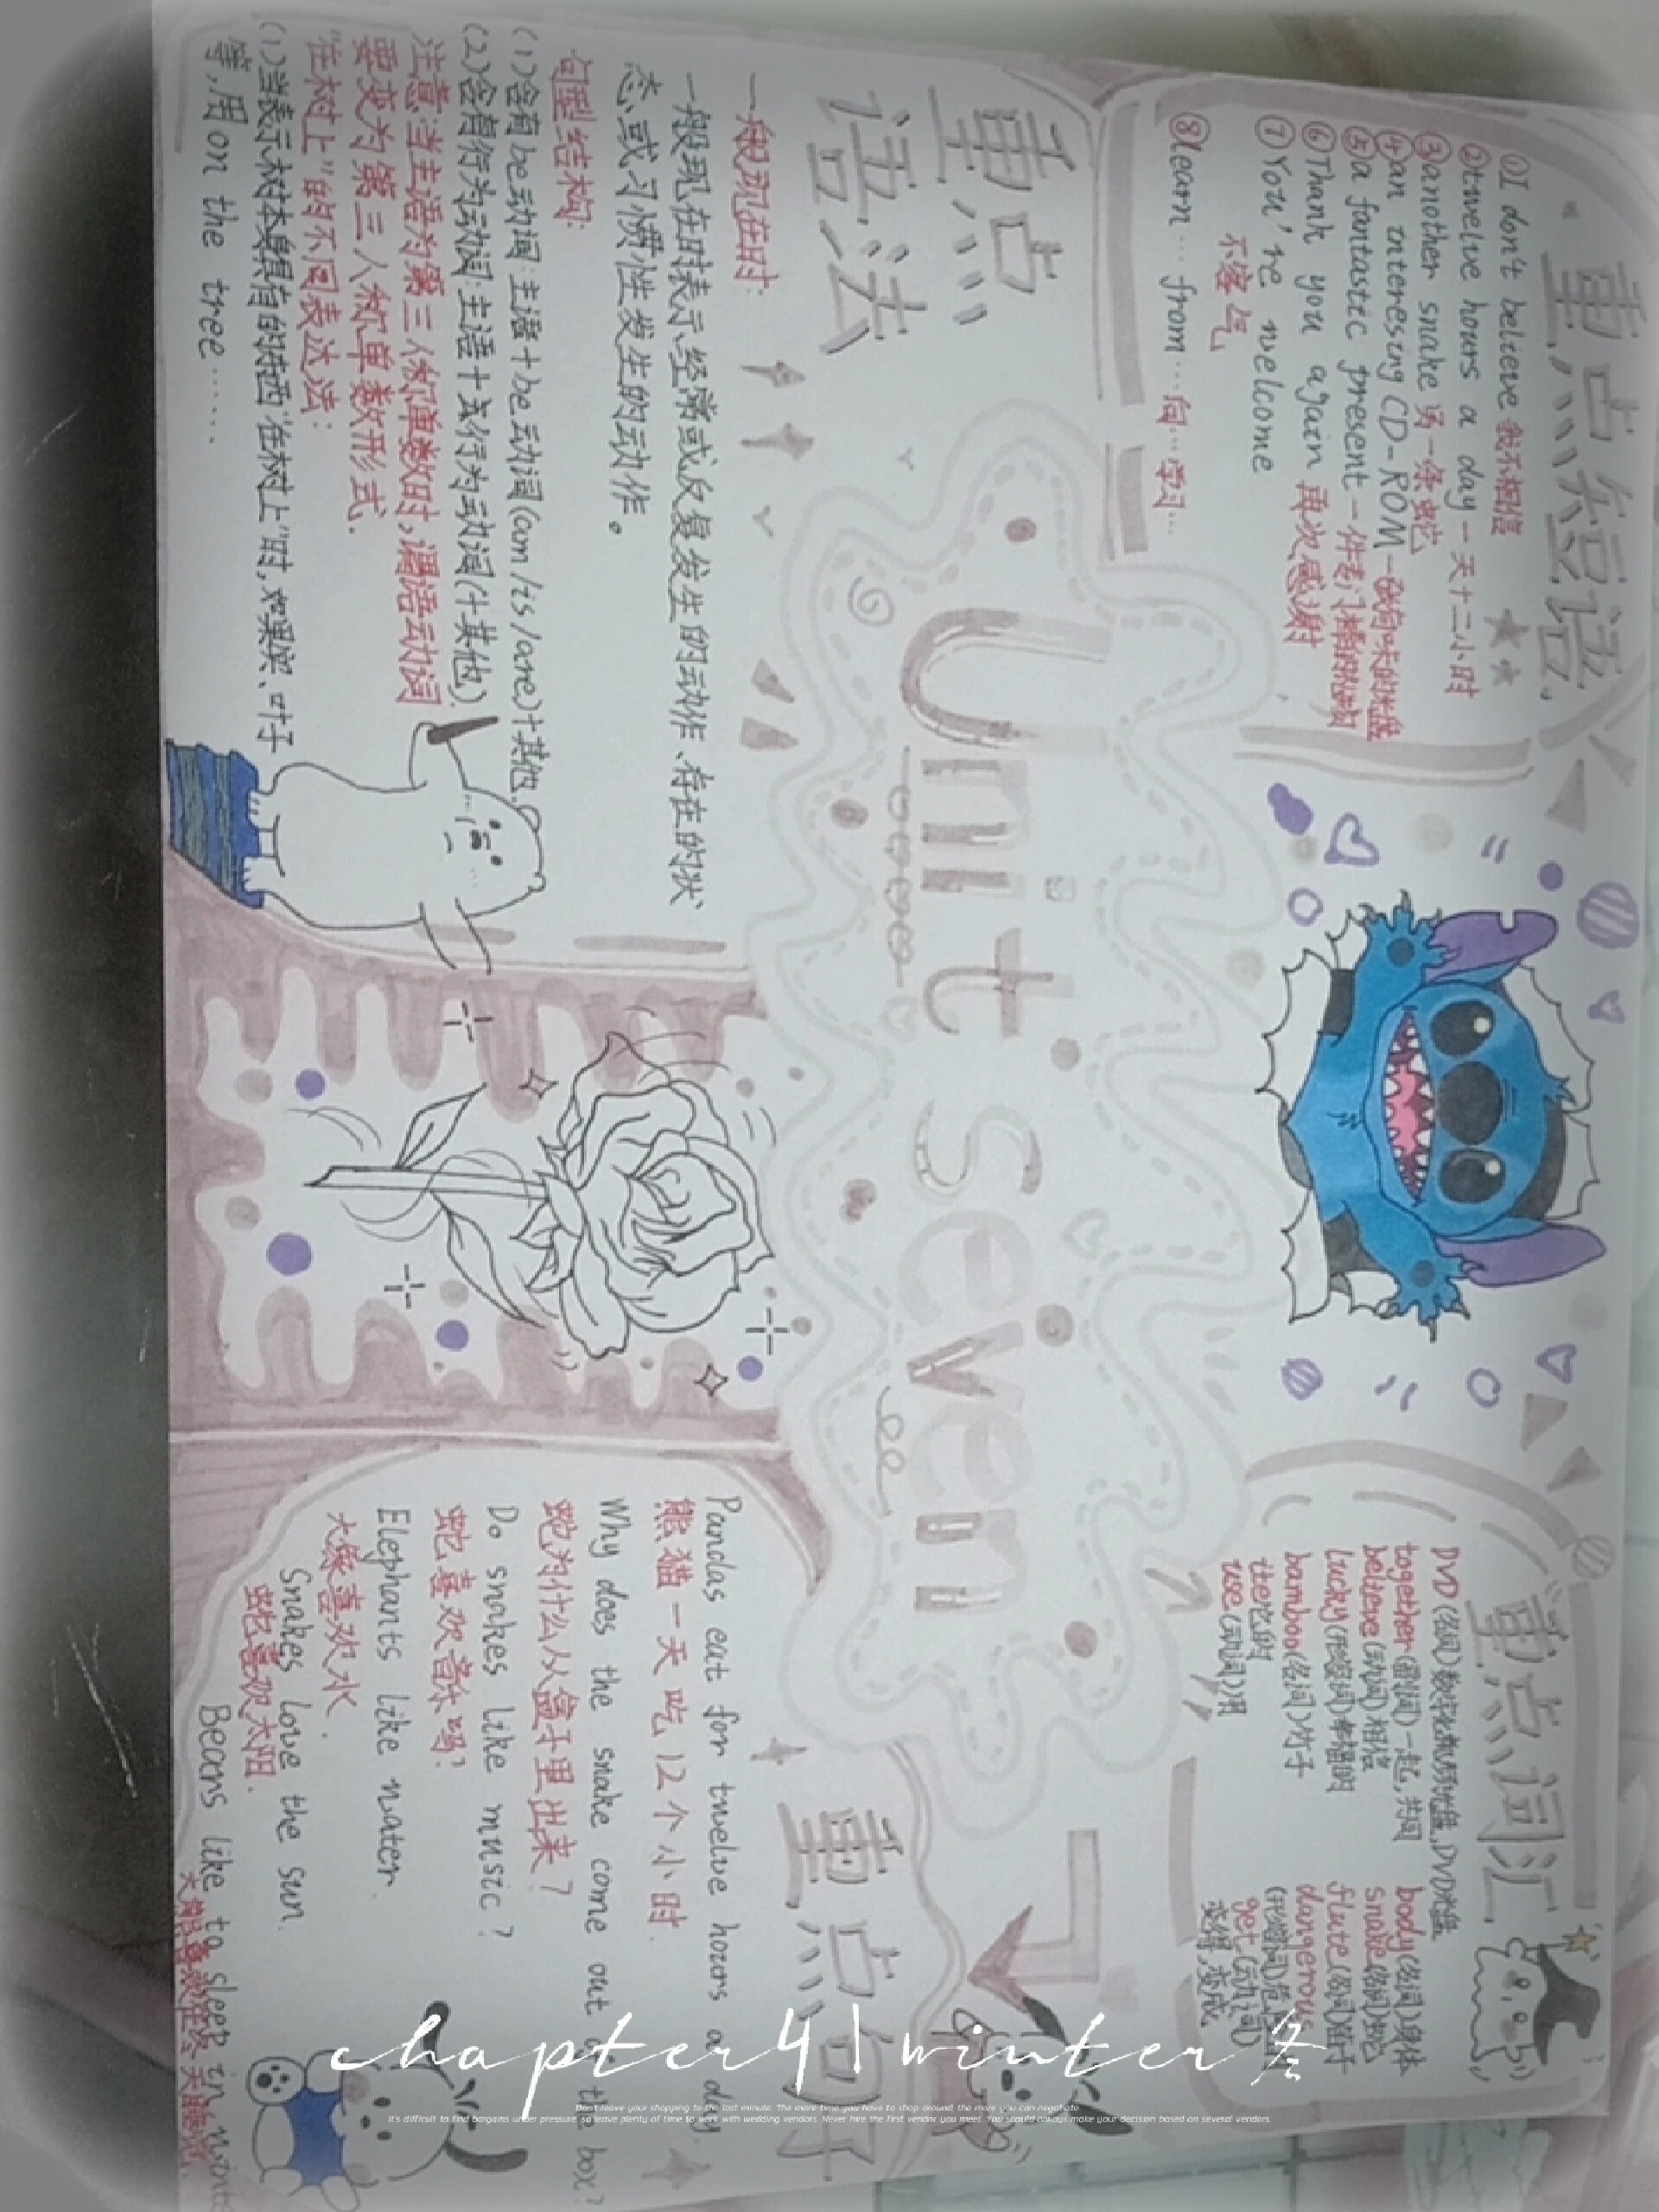 重点短语
①I don't believe 我不相信
②twelve hours a day 一天十二小时
③another snake 另一条蛇
④an interesing CD-ROM 一张有味的光盘
⑤a fantastic present 一件专门棒的礼物
⑥Thank you again 再次感谢
⑦You're welcome
不客气
⑧learn…from… 向…学习…
重点词汇
DVD (名词) 数字化视频光盘,DVD光盘
together (副词) 一起,共同
believe (动词) 相信
lucky (形容词) 幸福的
bamboo (名词) 竹子
the 它的
use (动词) 用
body (名词) 身体
snake (名词) 蛇
flute (名词) 笛子
dangerous
(形容词) 危险
get (动词)
变得,变成
Unit seven
重点
语法
一般现在时:
一般现在时表示经常或反复发生的动作、存在的状
态或习惯性发生的动作。
句型结构:
(1)含有be动词:主语+be动词(am/is/are)+其他.
(2)含有行为动词:主语+行为动词(+其他)
注意:当主语为第三人称单数时,谓语动词
要变为第三人称单数形式.
"在树上"的不同表达法:
(1)当表示树本身具有的东西"在树上"时,如果实、叶子
等,用on the tree……
重点句子
Pandas eat for twelve hours a day.
熊猫一天吃12个小时.
Why does the snake come out of the box?
蛇为什么从盒子里出来?
Do snakes like music?
蛇喜欢音乐吗?
Elephants like water.
大象喜欢水.
Snakes love the sun.
蛇喜欢太阳.
Bears like to sleep in
大熊喜欢在冬天睡觉.
chapter4|winter冬
Don't leave your shopping to the last minute. The more time you have to shop around, the more you can negotiate.
It's difficult to find bargains under pressure, so leave plenty of time to work with wedding vendors. Never hire the first vendor you meet. You should always make your decision based on several venders.